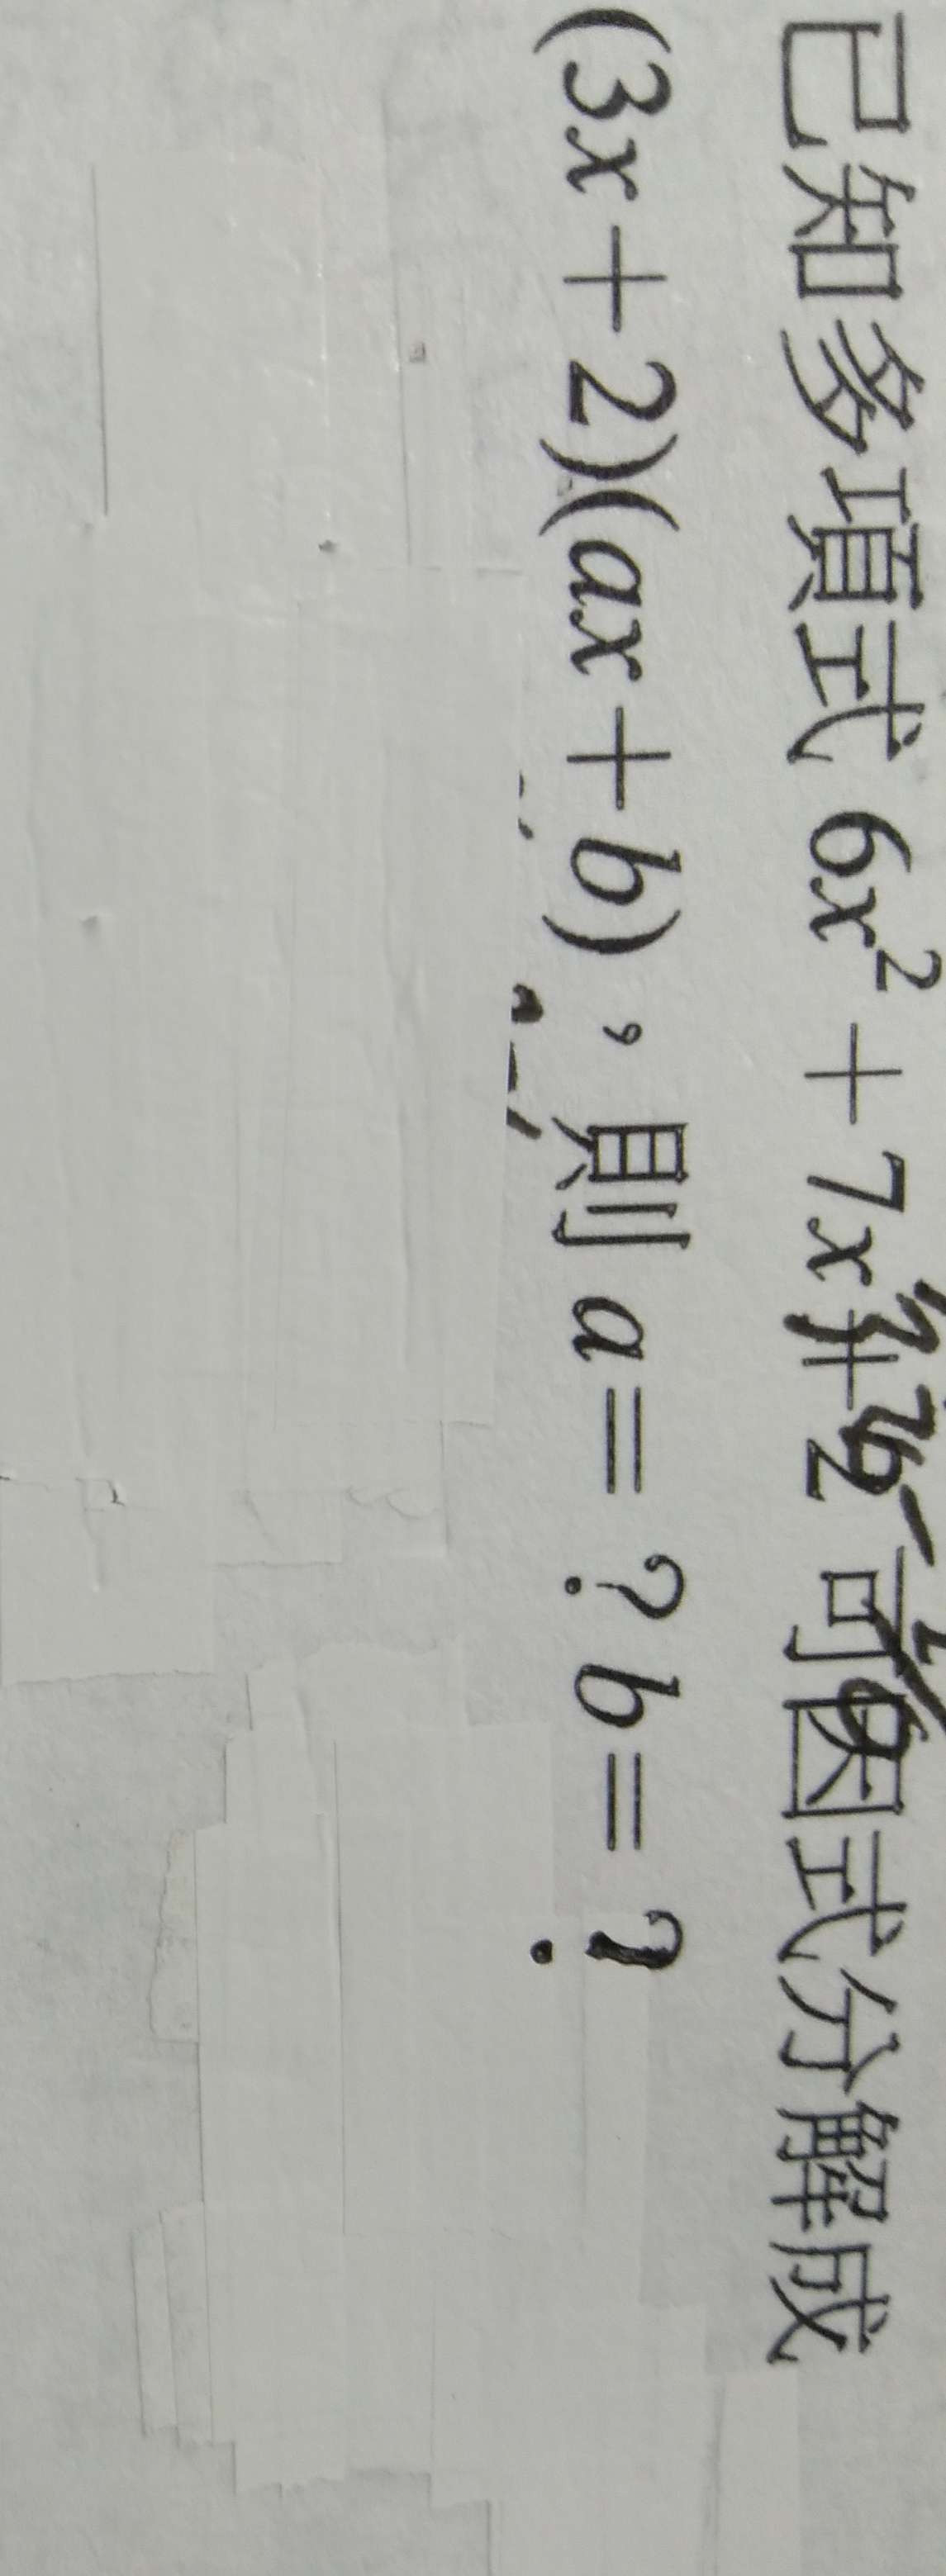 已知多項式 6x² + 7x + 2 可因式分解成
(3x + 2)(ax + b)，則 a = ？b = ？